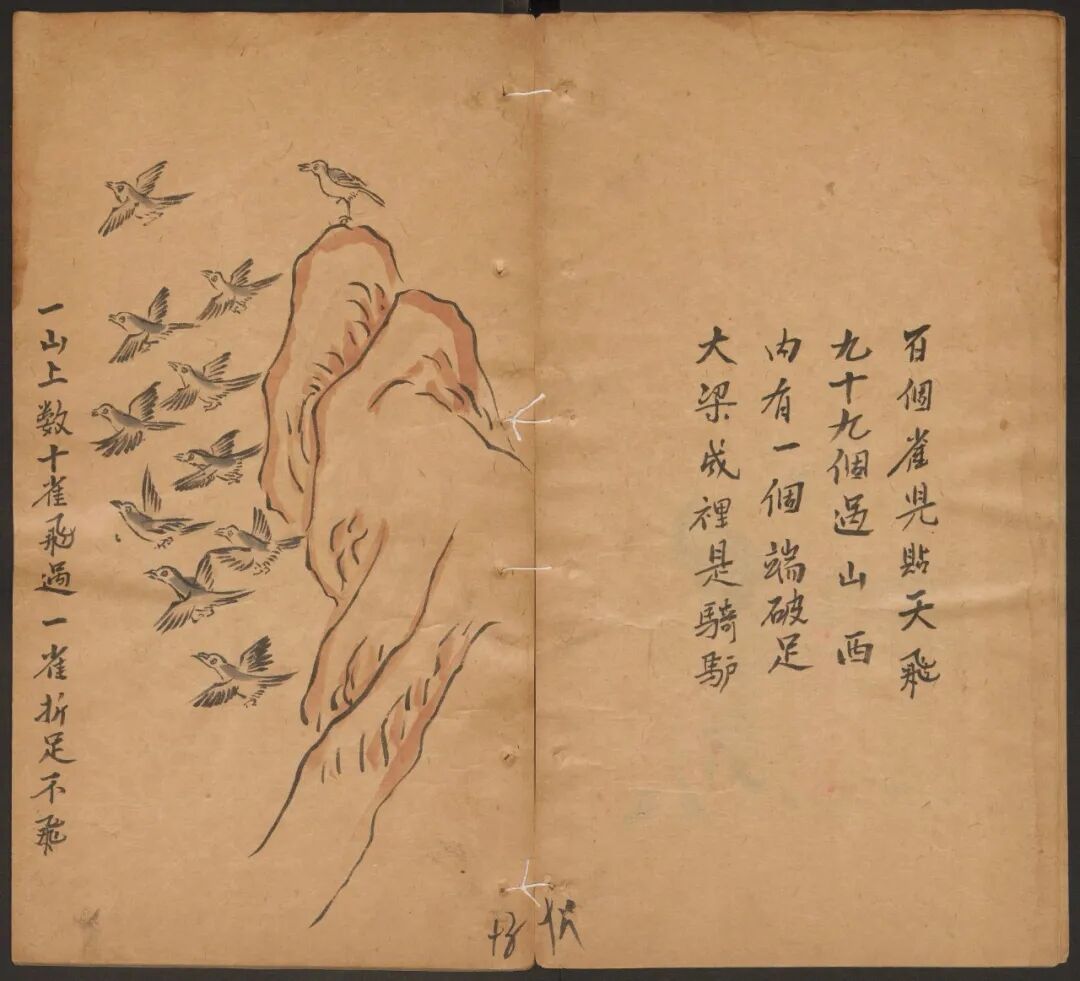 百個雀児貼天飛
九十九個過山西
内有一個端破足
大梁成裡是騎馿
一山上数十雀飛過一雀折足不飛